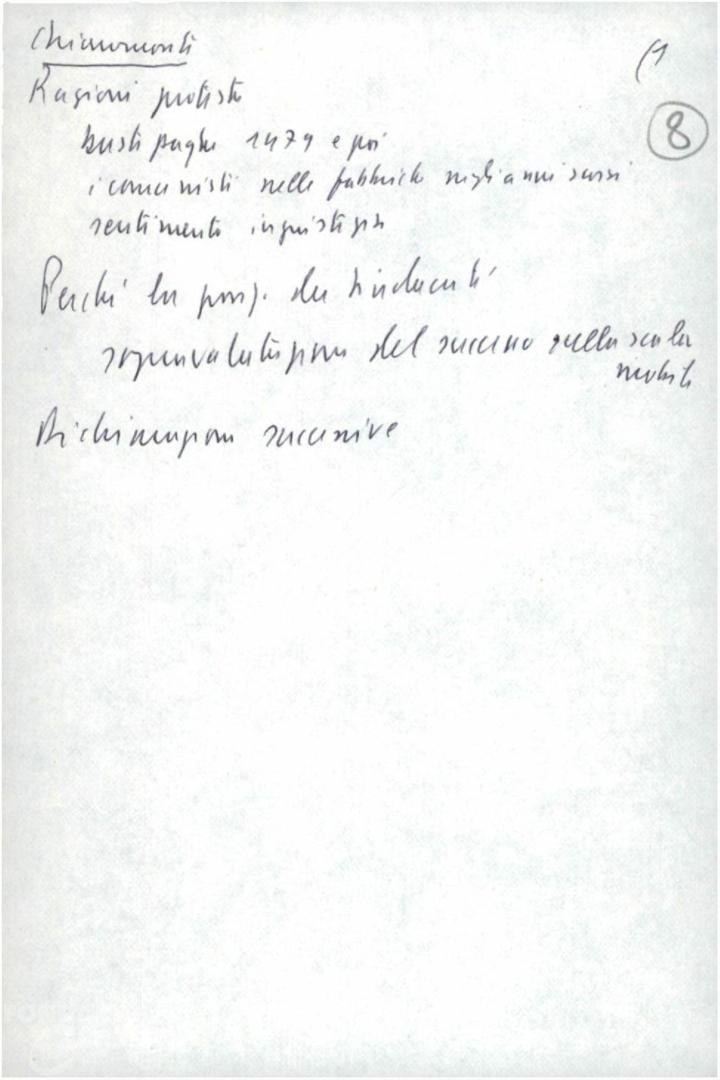 Chiaromonte
(1
8
Ragioni protesta
busti paghe 1979 e poi
i comunisti nelle fabbriche negli anni scorsi
sentimento ingiustizia
Perché la posiz. dei sindacati
sopravalutazione del successo sulla scala
mobile
Dichiarazioni successive